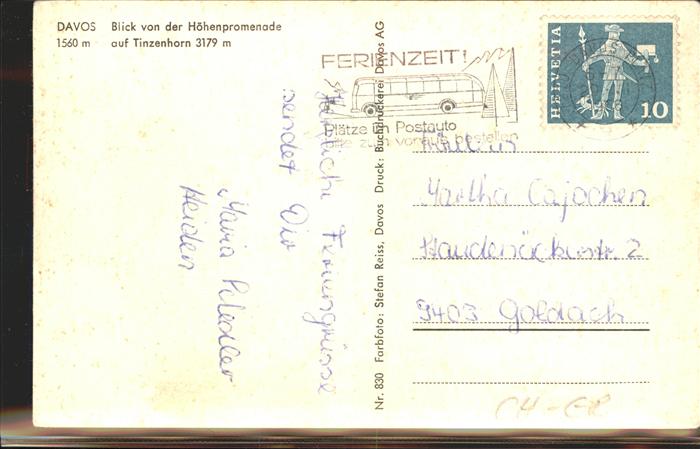 DAVOS Blick von der Höhenpromenade
1560 m auf Tinzenhorn 3179 m
FERIENZEIT!
Plätze im Postauto
bitte zum voraus bestellen
HELVETIA
10
Herzliche Feriengrüsse
sendet Dir
Maria
Heiden
Nr. 830 Farbfoto: Stefan Reiss, Davos Druck: Buchdruckerei Davos AG
Fräulein
Martha Cajochen
2
9403 Goldach
CH-GR